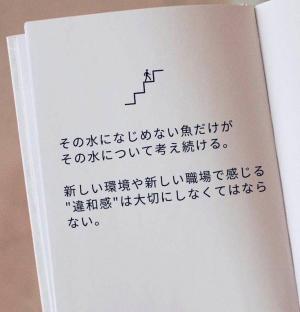 その水になじめない魚だけが
その水について考え続ける。
新しい環境や新しい職場で感じる
"違和感"は大切にしなくてはなら
ない。